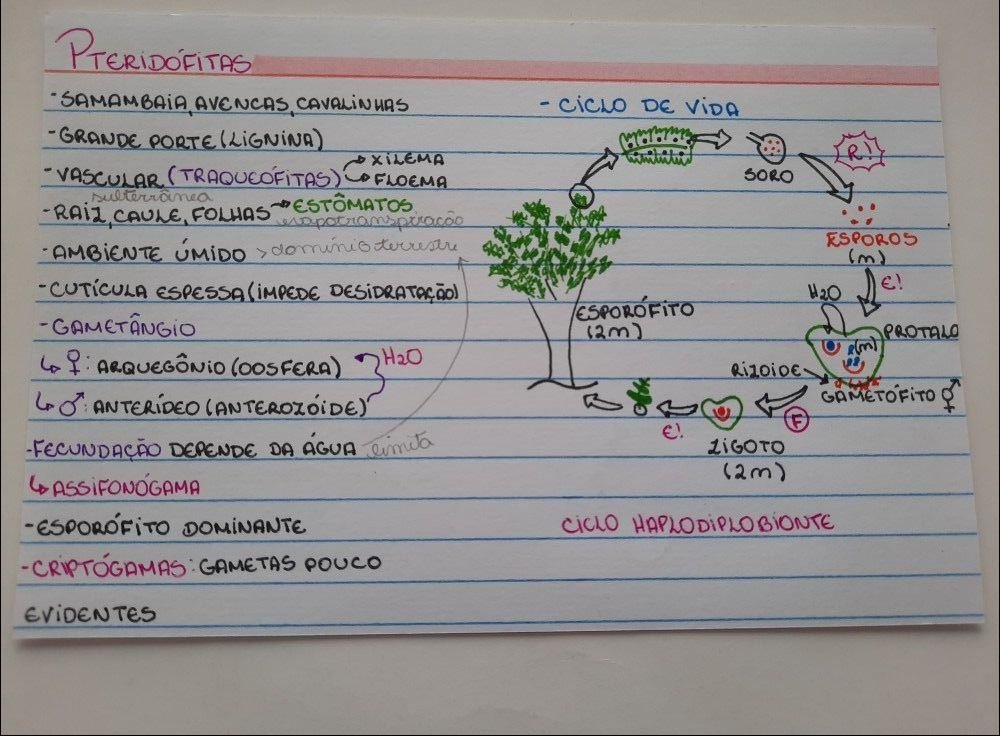 PTERIDÓFITAS
-SAMAMBAIA, AVENCAS, CAVALINHAS
-GRANDE PORTE (LIGNINA)
-VASCULAR (TRAQUEÓFITAS) → XILEMA
→ FLOEMA
subterrânea
-RAIZ, CAULE, FOLHAS → ESTÔMATOS
evapotranspiração
-AMBIENTE ÚMIDO > domínio terrestre
-CUTÍCULA ESPESSA (IMPEDE DESIDRATAÇÃO)
-GAMETÂNGIO
↳ ♀: ARQUEGÔNIO (OOSFERA)
H2O
↳ ♂: ANTERÍDEO (ANTEROZÓIDE)
-FECUNDAÇÃO DEPENDE DA ÁGUA limita
↳ ASSIFONÓGAMA
-ESPORÓFITO DOMINANTE
-CRIPTÓGAMAS: GAMETAS POUCO
EVIDENTES
- CICLO DE VIDA
SORO
R!
ESPOROS
(m)
E!
H2O
PROTALO
(m)
RIZOIDE
GAMETÓFITO ⚥
F
ZIGOTO
(2m)
E!
ESPORÓFITO
(2m)
CICLO HAPLODIPLOBIONTE